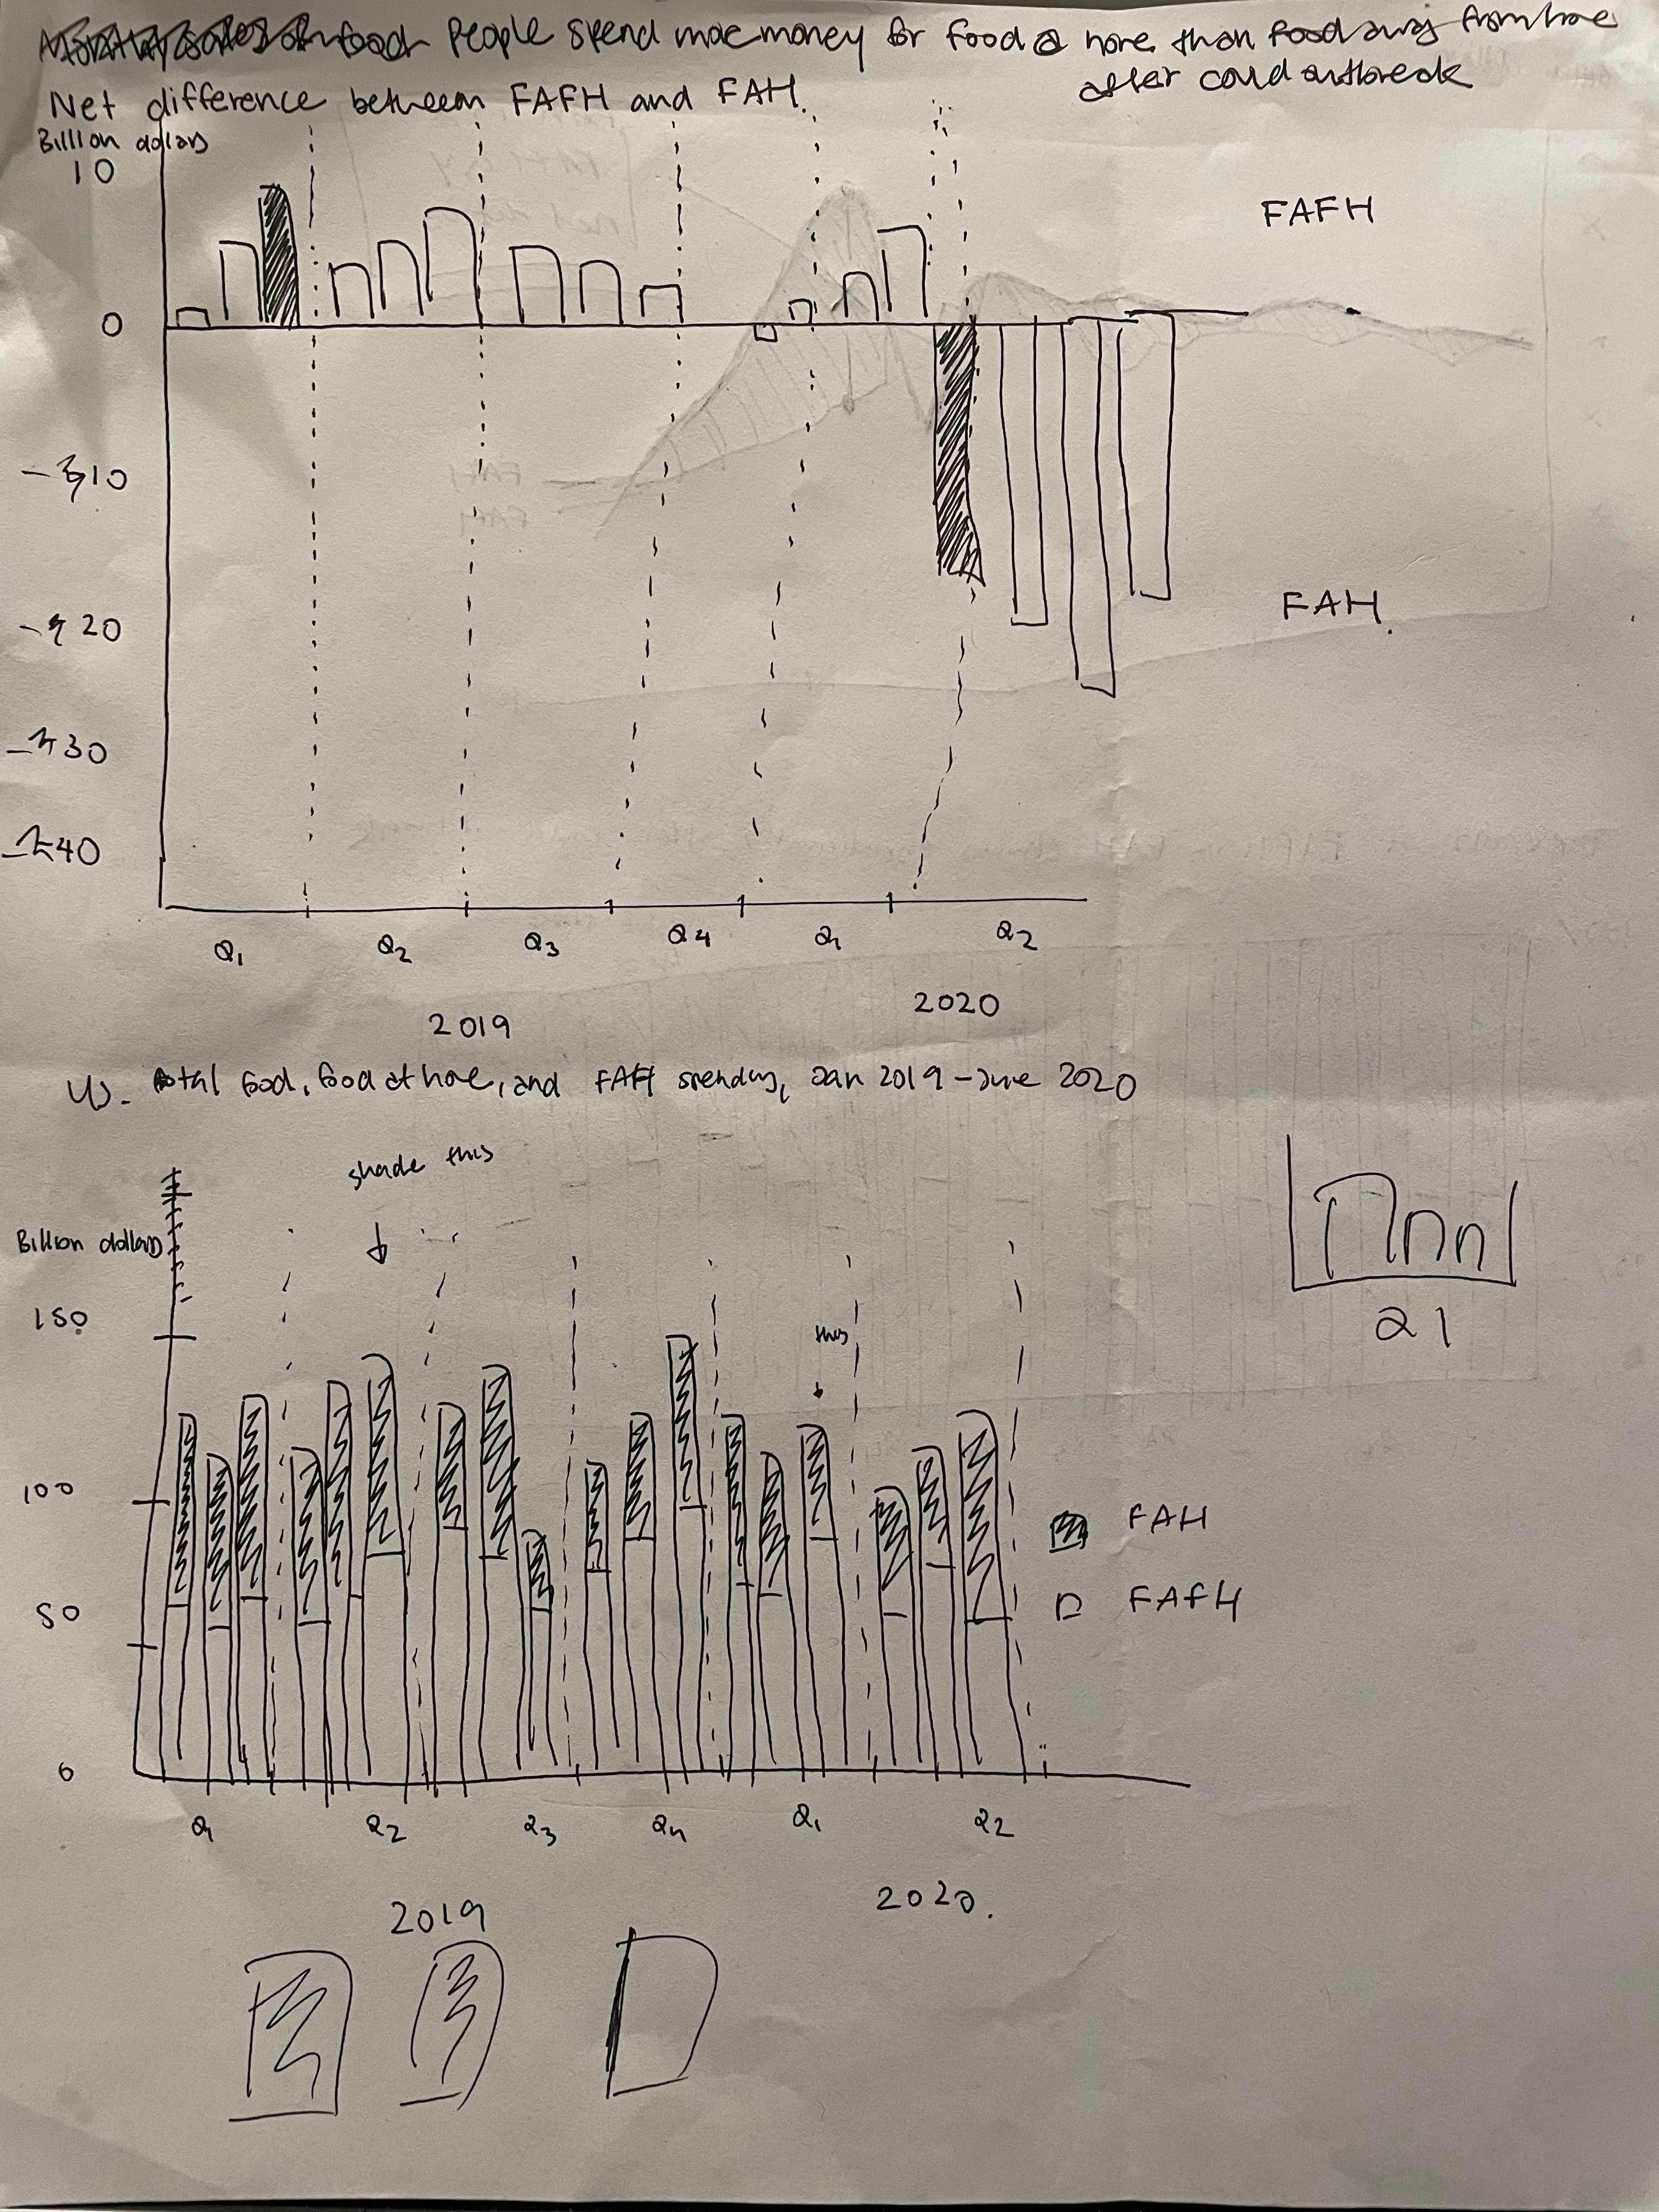 People spend more money for food @ home than food away from home
after covid outbreak
Net difference between FAFH and FAH.
Billion dollars
10
0
-$10
-$20
-$30
-$40
FAFH
FAH.
Q1 Q2 Q3 Q4 Q1 Q2
2019 2020
total food, food at home, and FAFH spending, Jan 2019 - June 2020
shade this
Billion dollars
150
100
50
0
this
Q1
FAH
FAFH
Q1 Q2 Q3 Q4 Q1 Q2
2019 2020.